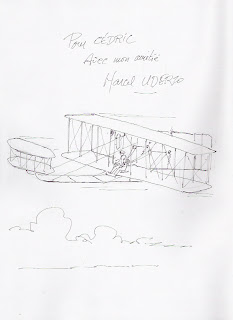 Pour CÉDRIC
Avec mon amitié
Marcel UDERZO